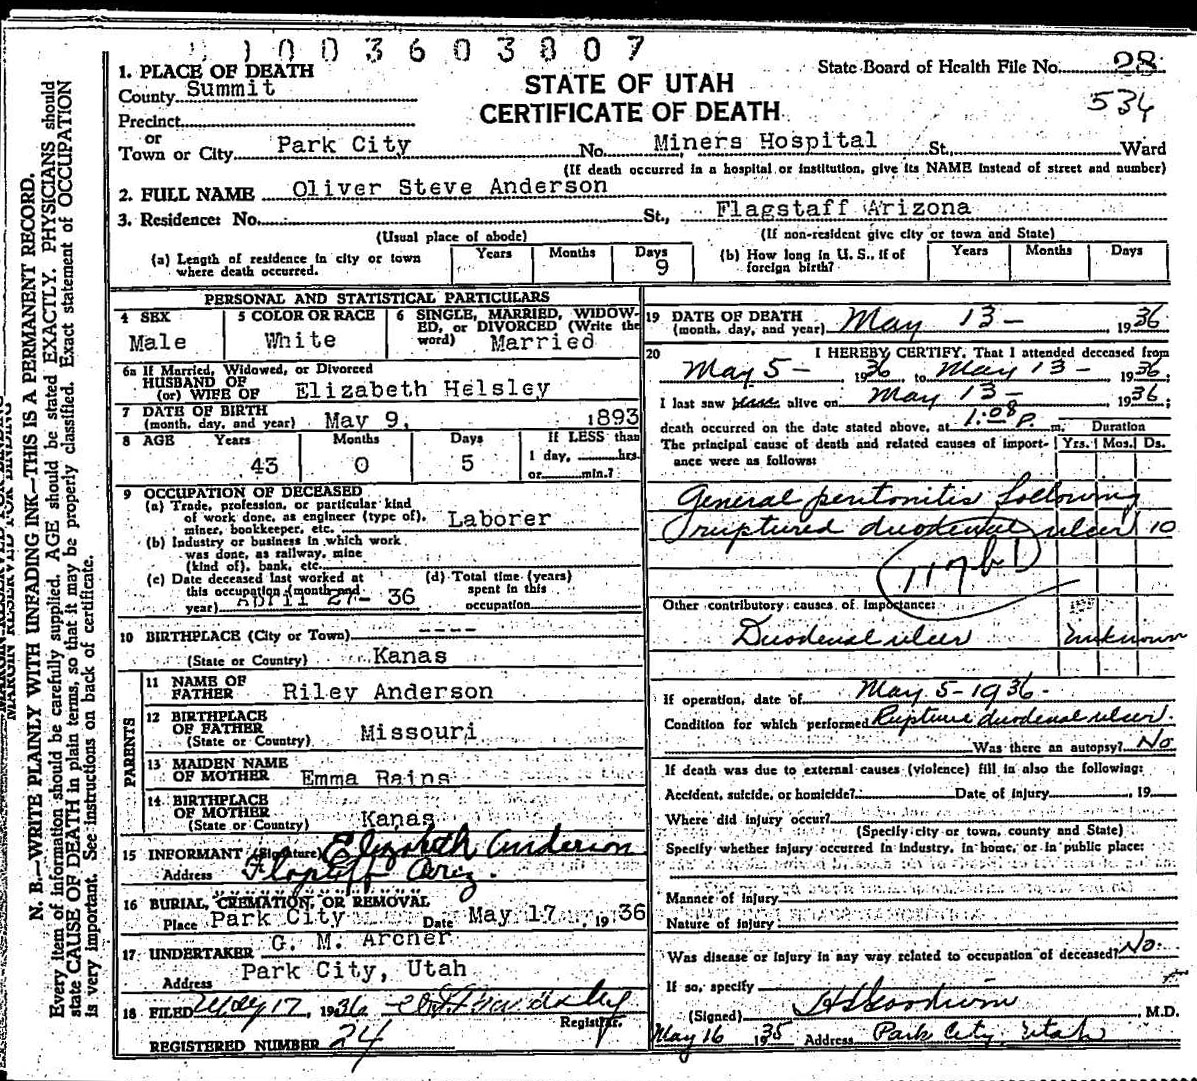 1003603807
1. PLACE OF DEATH
County Summit
Precinct
or
Town or City Park City
STATE OF UTAH
CERTIFICATE OF DEATH
State Board of Health File No. 28
534
No. Miners Hospital St., Ward
(If death occurred in a hospital or institution, give its NAME instead of street and number)
2. FULL NAME Oliver Steve Anderson
3. Residence: No. St., Flagstaff Arizona
(Usual place of abode) (If non-resident give city or town and State)
(a) Length of residence in city or town where death occurred. Years Months Days 9
(b) How long in U. S., if of foreign birth? Years Months Days
PERSONAL AND STATISTICAL PARTICULARS
4 SEX Male
5 COLOR OR RACE White
6 SINGLE, MARRIED, WIDOW-
ED, or DIVORCED (Write the
word) Married
6a If Married, Widowed, or Divorced
HUSBAND OF
(or) WIFE OF Elizabeth Helsley
7 DATE OF BIRTH
(month, day, and year) May 9, 1893
8 AGE Years 43 Months 0 Days 5
If LESS than
1 day, hrs.
or min.?
9 OCCUPATION OF DECEASED
(a) Trade, profession, or particular kind
of work done, as engineer (type of),
miner, bookkeeper, etc. Laborer
(b) Industry or business in which work
was done, as railway, mine
(kind of), bank, etc.
(c) Date deceased last worked at
this occupation (month and
year) April 27- 36
(d) Total time (years)
spent in this
occupation
10 BIRTHPLACE (City or Town) ----
(State or Country) Kanas
PARENTS
11 NAME OF
FATHER Riley Anderson
12 BIRTHPLACE
OF FATHER
(State or Country) Missouri
13 MAIDEN NAME
OF MOTHER Emma Rains
14 BIRTHPLACE
OF MOTHER
(State or Country) Kanas
15 INFORMANT (Signature) Elizabeth Anderson
Address Flagstaff Ariz.
16 BURIAL, CREMATION, OR REMOVAL
Place Park City Date May 17, 1936
17 UNDERTAKER G. M. Archer
Address Park City, Utah
18 FILED May 17, 1936
Registrar.
REGISTERED NUMBER 24
19 DATE OF DEATH
(month, day, and year) May 13- , 1936
20 I HEREBY CERTIFY, That I attended deceased from
May 5- 1936 to May 13- , 1936;
I last saw alive on May 13- 1936;
death occurred on the date stated above, at 1:08 P. m.
Duration
The principal cause of death and related causes of import-
ance were as follows:
Yrs. Mos. Ds.
General peritonitis following
ruptured duodenal ulcer 10
117b1
Other contributory causes of importance:
Duodenal ulcer Unknown
If operation, date of May 5-1936-
Condition for which performed Rupture duodenal ulcer
Was there an autopsy? No
If death was due to external causes (violence) fill in also the following:
Accident, suicide, or homicide? Date of injury , 19
Where did injury occur?
(Specify city or town, county and State)
Specify whether injury occurred in industry, in home, or in public place:
Manner of injury
Nature of injury
Was disease or injury in any way related to occupation of deceased? No.
If so, specify
(Signed) M.D.
May 16 1935 Address Park City, Utah
N. B.—WRITE PLAINLY WITH UNFADING INK—THIS IS A PERMANENT RECORD.
Every item of information should be carefully supplied. AGE should be stated EXACTLY. PHYSICIANS should
state CAUSE OF DEATH in plain terms, so that it may be properly classified. Exact statement of OCCUPATION
is very important. See instructions on back of certificate.
MARGIN RESERVED FOR BINDING